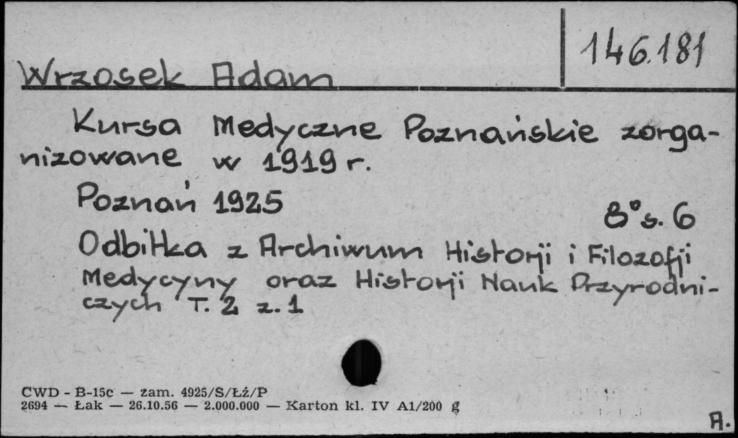 146.181
Wrzosek Adam
Kursa Medyczne Poznańskie zorga-
nizowane w 1919 r.
Poznań 1925
8° s. 6
Odbitka z Archiwum Historji i Filozofji
Medycyny oraz Historji Nauk Przyrodni-
czych T. 2 z. 1
CWD - B-15c — zam. 4925/S/Łź/P
2694 — Łak — 26.10.56 — 2.000.000 — Karton kl. IV A1/200 g
A.